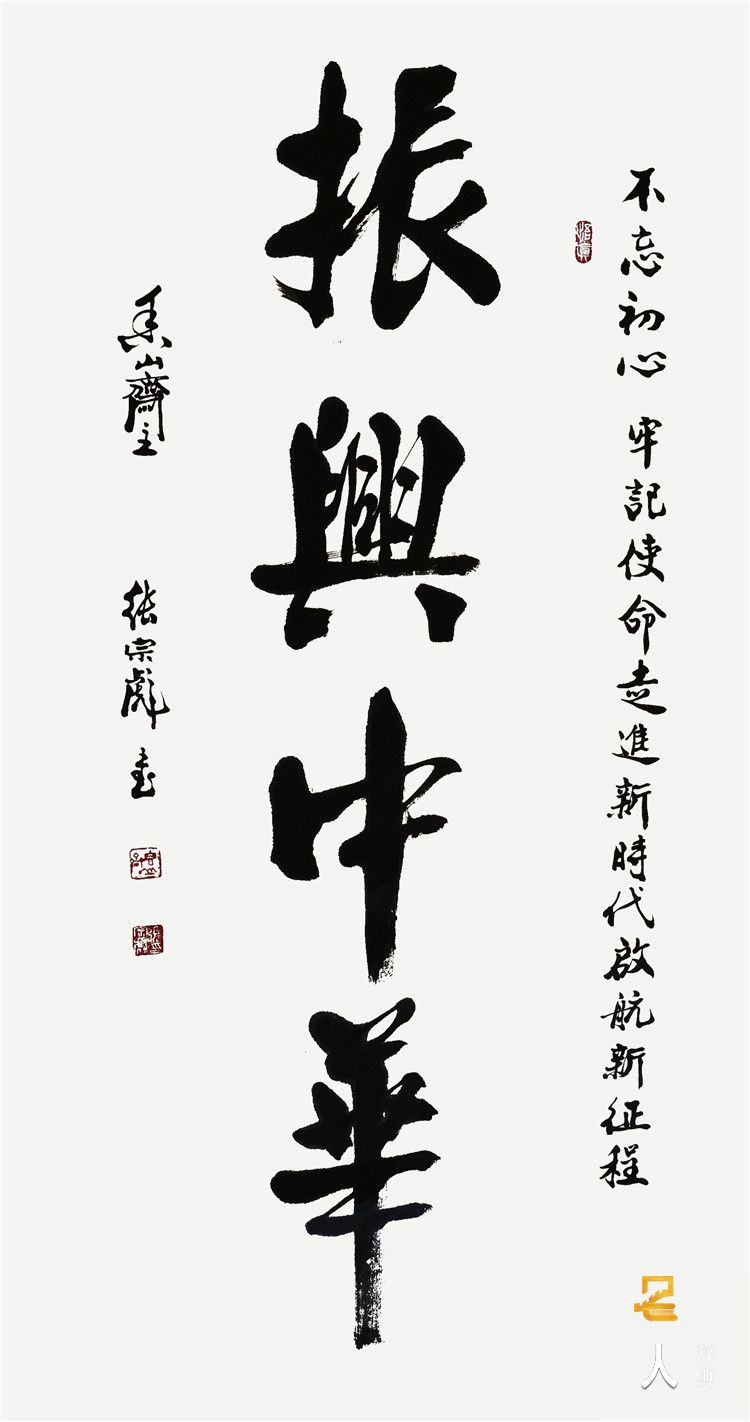 不忘初心 牢記使命走進新時代啟航新征程
振興中華
山齋主 張宗彪 書
名人
辞典